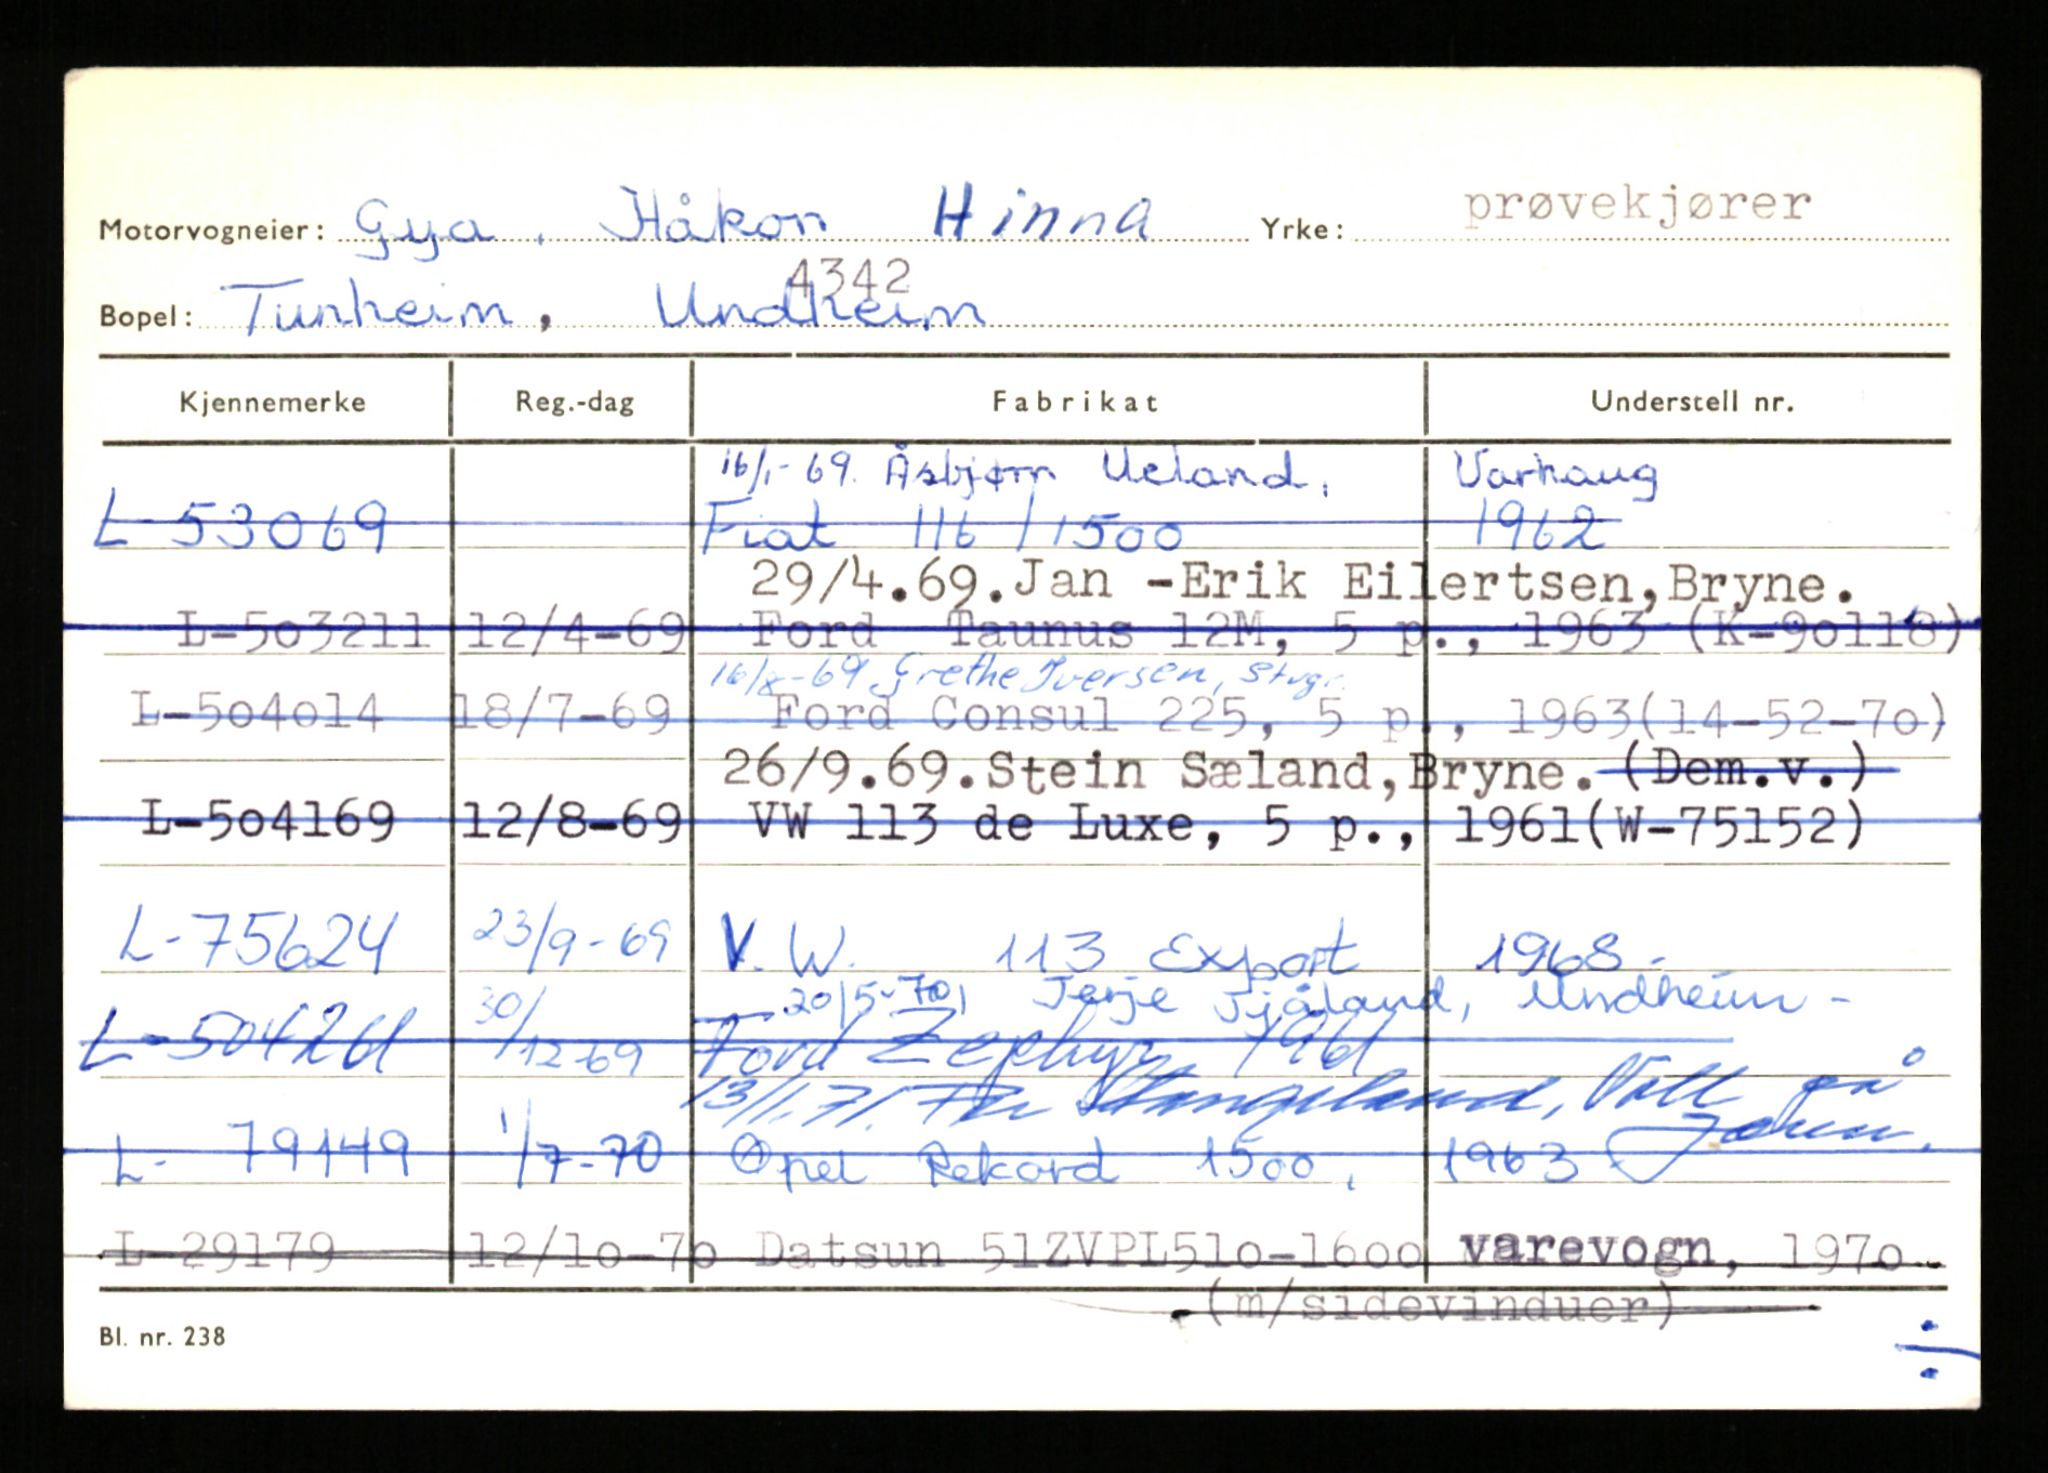 Motorvogneier: Gya, Håkon Hinna Yrke: prøvekjører
4342
Bopel: Tunheim, Undheim
Kjennemerke Reg.-dag Fabrikat Understell nr.
16/1-69. Åsbjørn Ueland, Varhaug
L-53069 Fiat 116/1500 1962
29/4.69.Jan -Erik Eilertsen,Bryne.
L-503211 12/4-69 Ford Taunus 12M, 5 p., 1963 (K-90118)
16/8-69 Grethe Iversen, Stvgr.
L-504014 18/7-69 Ford Consul 225, 5 p., 1963(14-52-70)
26/9.69.Stein Sæland,Bryne. (Dem.v.)
L-504169 12/8-69 VW 113 de Luxe, 5 p., 1961(W-75152)
L-75624 23/9-69 V.W. 113 Export 1968.
20/5-70, Terje Tjåland, Undheim -
30/12-69 Ford Zephyr 1961
13/1.71. Stangeland, Voll på Jæren.
L- 79149 1/7-70 Opel Rekord 1500, 1963
L-29179 12/10-70 Datsun 51ZVPL510-1600 varevogn, 1970
(m/sidevinduer)
Bl. nr. 238
÷